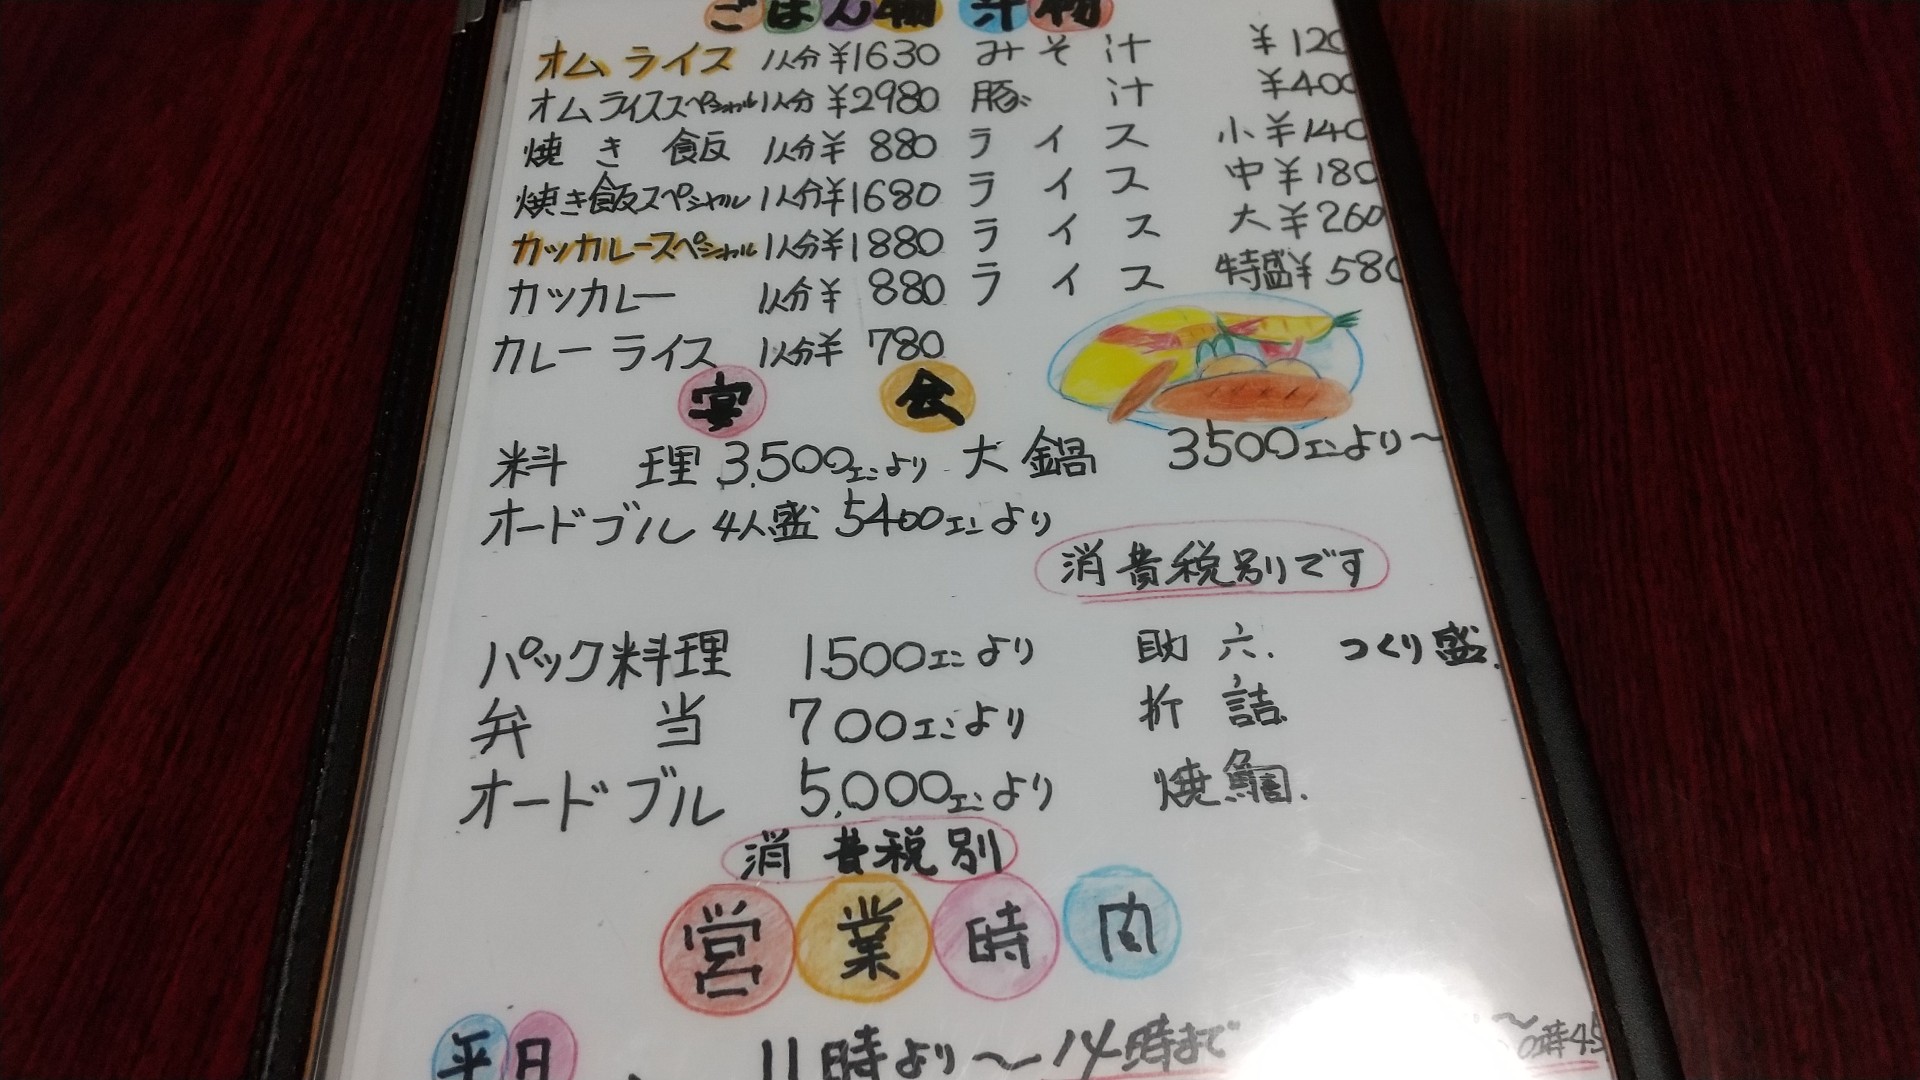 ごはん物 汁物
オムライス 1人分 ¥1630 みそ汁 ¥120
オムライススペシャル 1人分 ¥2980 豚汁 ¥400
焼き飯 1人分 ¥880 ライス 小 ¥140
焼き飯スペシャル 1人分 ¥1680 ライス 中 ¥180
カツカレースペシャル 1人分 ¥1880 ライス 大 ¥260
カツカレー 1人分 ¥880 ライス 特盛 ¥580
カレーライス 1人分 ¥780
宴会
料理 3,500エンより 大鍋 3500エンより〜
オードブル 4人盛 5400エンより
消費税別です
パック料理 1500エンより 助六. つくり盛.
弁当 700エンより 折詰.
オードブル 5,000エンより 焼鯛.
消費税別
営業時間
平日 11時より〜14時まで